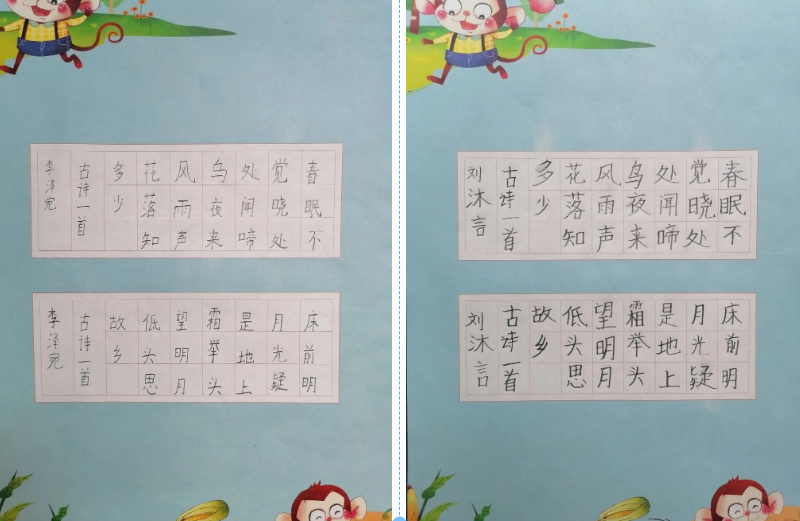 春眠不
觉晓处
处闻啼
鸟夜来
风雨声
花落知
多少
古诗一首
李泽宛
床前明
月光疑
是地上
霜举头
望明月
低头思
故乡
古诗一首
李泽宛
春眠不
觉晓处
处闻啼
鸟夜来
风雨声
花落知
多少
古诗一首
刘沐言
床前明
月光疑
是地上
霜举头
望明月
低头思
故乡
古诗一首
刘沐言